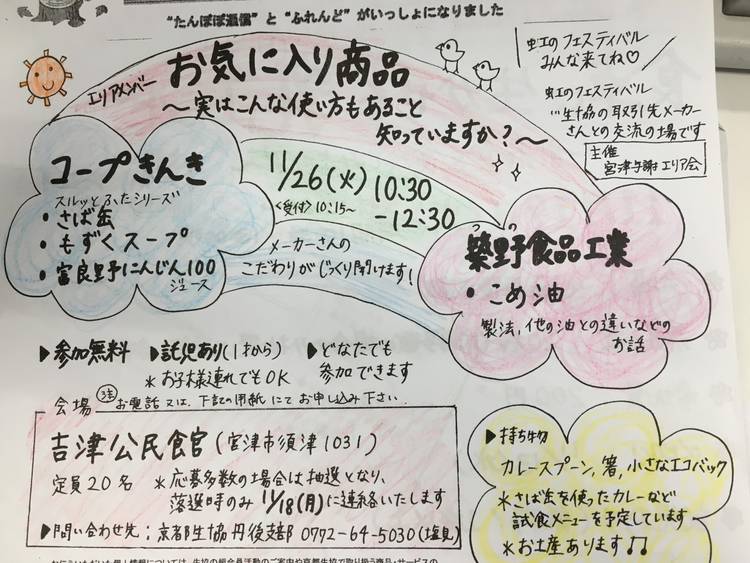 "たんぽぽ通信"と"ふれんど"がいっしょになりました
エリアメンバー お気に入り商品
～実はこんな使い方もあること
知っていますか?～
虹のフェスティバル
みんな来てね♡
虹のフェスティバル
…生協の取引先メーカー
さんとの交流の場です
主催
宮津与謝エリア会
コープきんき
スルッとふたシリーズ
・さば缶
・もずくスープ
・富良野にんじん100
ジュース
11/26(火) 10:30
-12:30
<受付>10:15～
メーカーさんの
こだわりがじっくり聞けます!
つの
築野食品工業
・こめ油
製法、他の油との違いなどの
お話
▶参加無料 ▶託児あり(1才から) ▶どなたでも
参加できます
*お子様連れでもOK
会場 注 お電話又は、下記の用紙にてお申し込み下さい。
吉津公民館(宮津市須津1031)
定員20名 *応募多数の場合は抽選となり、
落選時のみ11/18(月)に連絡いたします
▶問い合わせ先:京都生協丹後支部 0772-64-5030(塩見)
▶持ち物
カレースプーン,箸,小さなエコバック
*さば缶を使ったカレーなど
試食メニューを予定しています
*お土産あります♫♫